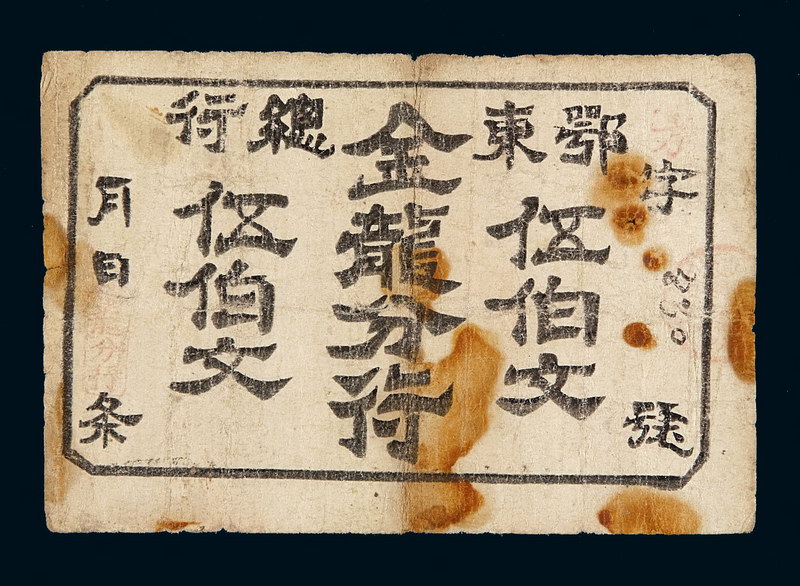 字 號
鄂東
伍伯文
金龍分行
總行
伍伯文
月日 条